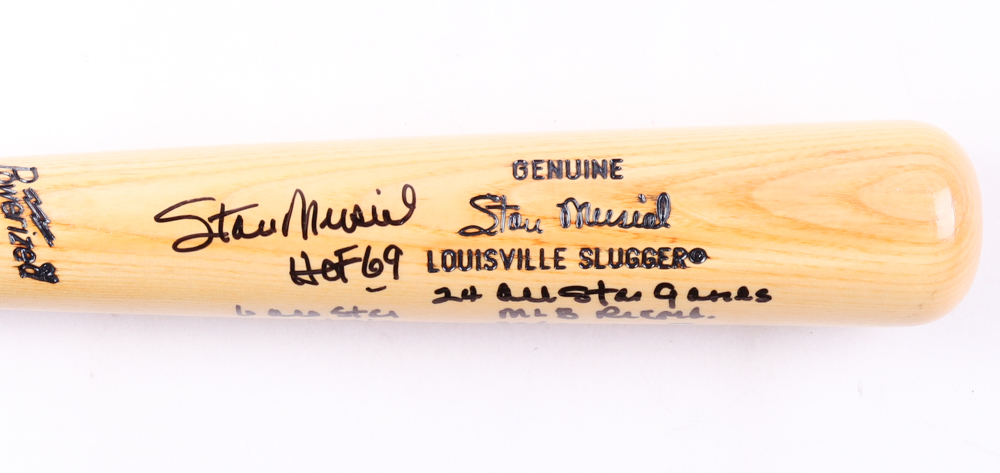 Powerized
GENUINE
Stan Musial
Stan Musial
HOF 69
LOUISVILLE SLUGGER®
24 All Star Games
6 All Star
MLB Record.